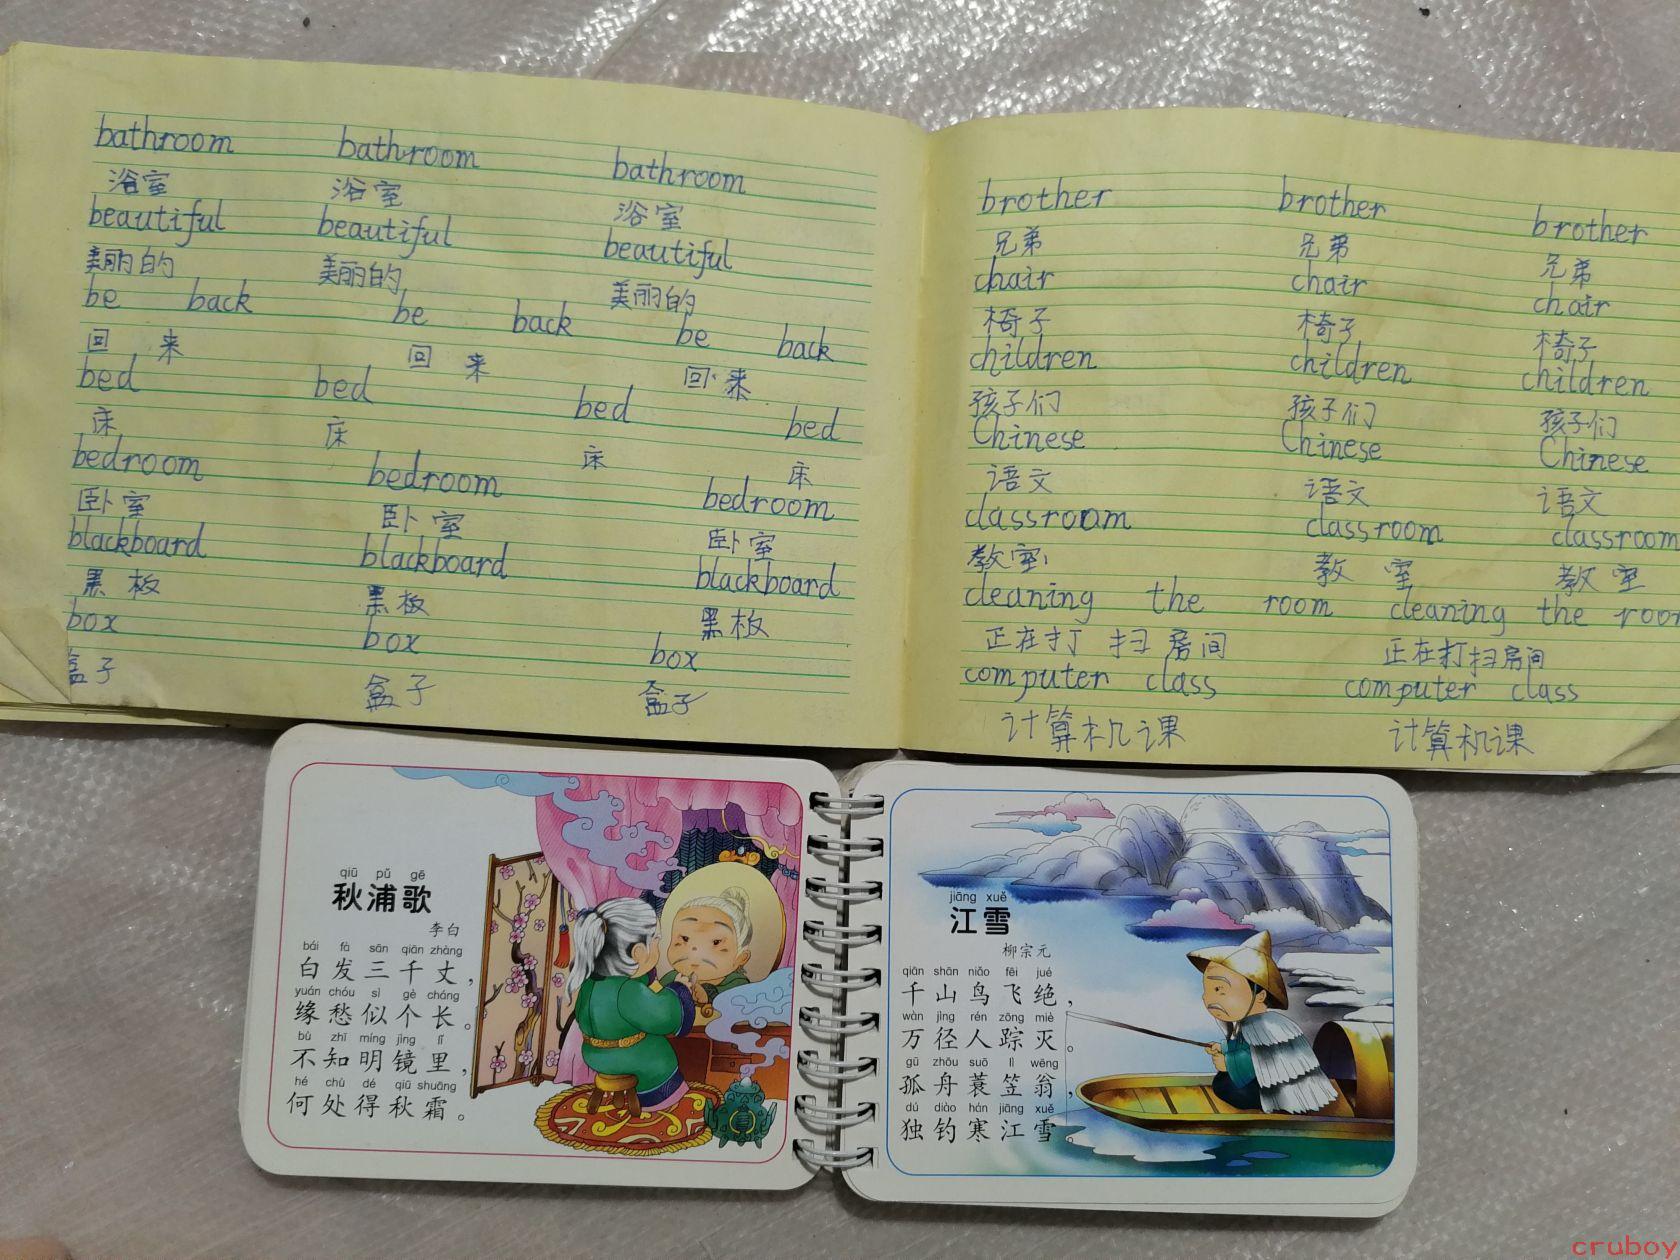 bathroom bathroom bathroom
浴室 浴室 浴室
beautiful beautiful beautiful
美丽的 美丽的 美丽的
be back be back be back
回来 回来 回来
bed bed bed bed
床 床 床 床
bedroom bedroom bedroom
卧室 卧室 卧室
blackboard blackboard blackboard
黑板 黑板 黑板
box box box
盒子 盒子 盒子
brother brother brother
兄弟 兄弟 兄弟
chair chair chair
椅子 椅子 椅子
children children children
孩子们 孩子们 孩子们
Chinese Chinese Chinese
语文 语文 语文
classroom classroom classroom
教室 教室 教室
cleaning the room cleaning the room
正在打扫房间 正在打扫房间
computer class computer class
计算机课 计算机课
qiū pǔ gē
秋浦歌
李白
bái fà sān qiān zhàng
白发三千丈，
yuán chóu sì gè cháng
缘愁似个长。
bù zhī míng jìng lǐ
不知明镜里，
hé chù dé qiū shuāng
何处得秋霜。
jiāng xuě
江雪
柳宗元
qiān shān niǎo fēi jué
千山鸟飞绝，
wàn jìng rén zōng miè
万径人踪灭。
gū zhōu suō lì wēng
孤舟蓑笠翁，
dú diào hán jiāng xuě
独钓寒江雪。
cruboy